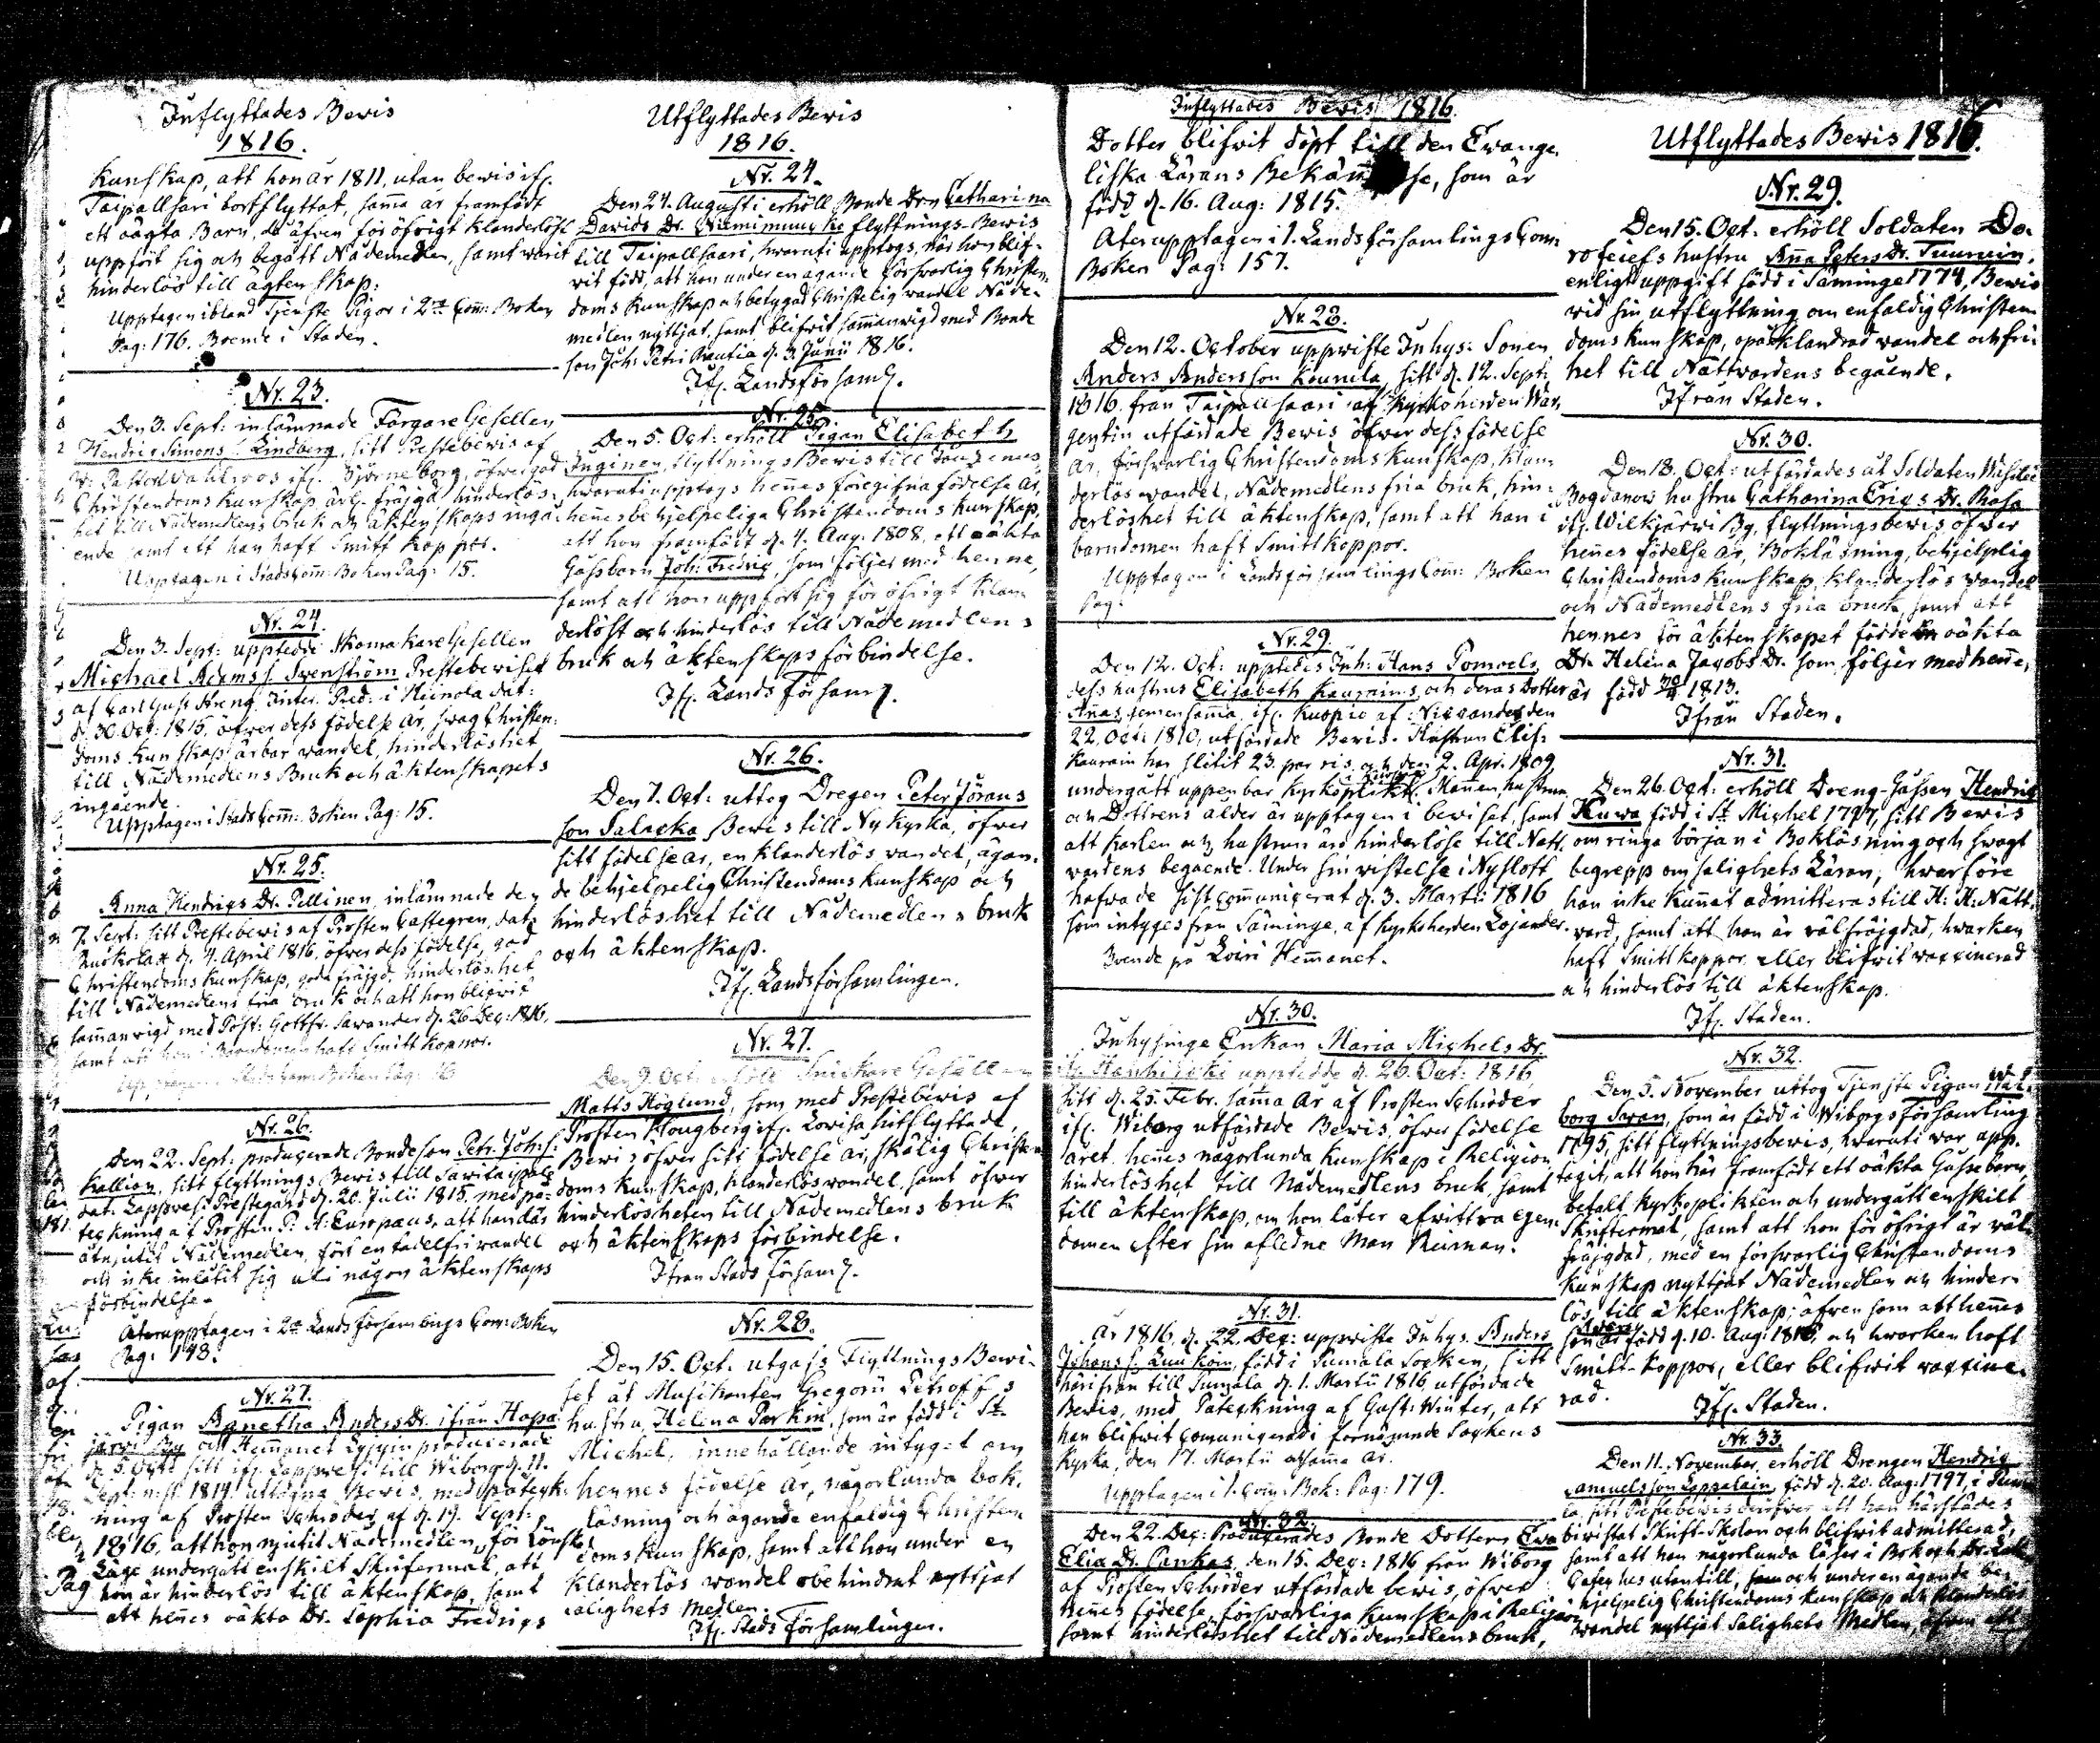 Inflyttades Bevis
1816.
Kunskap, att hon år 1811, utan bewis ifr.
Taipallsari bortflyttat, samma år framfödt
ett oägta Barn, då äfven för öfrigt klanderlöst
uppfört sig och begått Nådemedlen, samt warit
hinderlös till ägtenskap.
Upptagen ibland Tjenste Pigor i 2ra Com: Boken
Pag: 176. Boende i Staden.
Nr. 23.
Den 3. Sept: inlämnade Färgare Gesellen
Hendric Simons s. Lindberg, sitt Prestebewis af
V: Pastor Wahlroos ifr. Björneborg, öfwer god
Christendoms kunskap, ärl. fräjgd hinderlös-
het till Nådemedlens bruk och äktenskaps ingå-
ende samt att han haft Smitt koppor.
Upptagen i Stads Com: Boken Pag: 15.
Nr. 24.
Den 3. Sept: uppteddi Skomakare Gesellen
Michael Adams s. Svenström Prestebewiset
af Carl Gust. Streng Inter. Pred: i Heinola dat:
d. 30. Oct: 1815, öfwer dess födelse år, swag Christen-
doms kunskap, ärbar wandel, hinderlöshet
till Nådemedlens Bruk och äktenskapets
ingående.
Upptagen i Stads Com: Boken Pag: 15.
Nr. 25.
Anna Hendrics Dr. Pellinen, inlämnade den
7. Sept: sitt Prestebewis af Prosten Castegren, dat:
Ruokolax d. 4. April 1816, öfwer dess födelse, god
Christendoms kunskap, goda fräjgd, hinderlöshet
till Nådemedlens fria bruk och att hon blifwit
samanwigd med Post: Gottfr. Sawander d. 26. Dec: 1816,
samt att hon i Barndomen haft Smitt koppor.
Nr. 26.
Den 22. Sept: producerade Bondeson Petr. Joh: s.
Kallion, sitt flyttnings Bewis till Savitaipale
dat. Lappvesi Prestegård d. 20. Julii 1815, med på-
teckning af Prosten P. H: Europaeus, att han där
åtnjutit Nådemedlen, fört en tadelfri wandel
och icke inlåtit sig uti någon äktenskaps
förbindelse.
Återupptagen i 2ra Landsförsamlings Com: Boken
Pag: 178.
Nr. 27.
Pigan Agnetha Anders Dr. ifrån Hapa-
järvi By och Hemanet Lyjyin producerade
d. 5. Oct: sitt ifr. Lappvesi till Wiborg d. 11.
Sept: n. st. 1814 uttagna Bewis, med påteck-
ning af Prosten Schröder af d. 19. Sept:
1816, att hon njutit Nådemedlen, för Lönska-
Läge undergått enskilt Skriftermål, att
hon är hinderlös till äktenskap, samt
att henes oäkta Dr. Sophia Fredrics
Utflyttades Bevis
1816.
Nr. 24.
Den 24. Augusti erhöll Bonde Drn Catharina
Davids Dr. Niemimuucko flyttnings-Bewis
till Taipallsaari, hwaruti upptogs, när hon blif-
wit född, att hon under en ägande försvarlig Christen-
doms kunskap och betygad Christelig wandel Nåde-
medlen nyttjat, samt blifwit samanwigd med Bonde
son Joh: Petri Rautia d. 3. Junii 1816.
Ifr. Landsförsaml.
Nr. 25.
Den 5. Oct: erhöll Pigan Elisabeth
Inginen, flyttnings Bewis till Jougenus,
hwaruti upptogs hennes föregifna födelse år,
hennes behjelpeliga Christendoms kunskap,
att hon framfödt d. 4. Aug. 1808, ett oäkta
Gossbarn Joh: Fredric, som följer med henne,
samt att hon uppfört sig för öfrigt klan-
derlöst och hinderlös till Nådemedlens
bruk och äktenskaps förbindelse.
Ifr. Landsförsaml.
Nr. 26.
Den 7. Oct: uttog Drengen Peter Jörans
son Salacka Bewis till Nykyrka, öfwer
sitt födelse år, en klanderlös wandel, ägan-
de behjelpelig Christendoms kunskap och
hinderlöshet till Nådemedlens bruk
och äktenskap.
Ifr. Landsförsamlingen.
Nr. 27.
Den 9. Oct: erhöll Snickare Gesällen
Matts Höglund, som med Prestebewis af
Prosten Kougberg ifr. Lovisa hitflyttade,
Bewis öfwer sitt födelse år, skälig Christen-
doms kunskap, klanderlös wandel, samt öfwer
hinderlösheten till Nådemedlens bruk
och äktenskaps förbindelse.
Ifrån Stads församl.
Nr. 28.
Den 15. Oct. utgafs Flyttnings Bewi-
set åt Musikanten Gregorii Petroffs
hustru, Helena Parkin, som är född i St.
Michel, innehållande intyget om
hennes födelse år, någorlunda bok-
läsning och ägande enfaldig Christen-
doms kunskap, samt att hon under en
klanderlös wandel obehindrat nyttjat
salighets medlen.
Ifr. Stads församlingen.
Inflyttades Bewis 1816.
Dotter blifwit döpt till den Evange-
liska Lärans Bekännelse, som är
född d. 16. Aug: 1815.
Återupptagen i 1. Landsförsamlings Com:
Boken Pag: 157.
Nr. 28.
Den 12. October uppwiste Inhys: Sonen
Anders Andersson Kounela, sitt d. 12. Sept:
1816. från Taipallsaari af Kyrkoherden War-
gentin utfärdade Bewis öfwer dess födelse
år, försvarlig Christendoms kunskap, klan-
derlös wandel, Nådemedlens fria bruk, hin-
derlöshet till äktenskap, samt att han i
barndomen haft Smitt koppor.
Upptagen i Landsförsamlings Com: Boken
Pag:
Nr. 29.
Den 12. Oct: uppteddes Inh: Hans Pomoels
dess hustrus Elisabeth Kaurains, och deras Dotter
Annas, semensamma, ifr. Kuopio af Nissander den
22. Oct: 1810, utfärdade Bewis. Hustrun Elis:
Kaurain har slitit 23. par ris, och den 2. Apr. 1809
undergått uppenbar Kyrkoplikt. Mannen, hustrun
och Dottrens ålder är upptagen i bewiset, samt
att karlen och hustrun äro hinderlöse till Natt-
wardens begående. Under sin wistelse i Nyslott
hafwa de sist communicerat d. 3. Martii 1816
som intyges från Säminge, af Kyrkoherden Lojander.
Boende på Loiri Hemanet.
Nr. 30.
Inhysinge Enkan Maria Michels Dr.
uppteddе d. 26. Oct: 1816,
sitt d. 25. Febr. samma år af Prosten Schröder
ifr. Wiborg utfärdade Bewis, öfwer födelse
året, henes någorlunda kunskap i Religion,
hinderlöshet till Nådemedlens bruk samt
till äktenskap, om hon låter afwittra egen-
domen efter sin afledne Man Reiman.
Nr. 31.
År 1816, d. 22. Dec: uppwiste Inhys. Anders
Johans s. Luukoin, född i Sumala Socken, sitt
härifrån till Sumala d. 1. Martii 1816 utfärdade
Bewis, med Påteckning af Gust: Winter, att
han blifwit comunicerad i förenämnde Sockens
Kyrka, den 17. Martii samma år.
Upptagen i 1. Com: Bok: Pag: 179.
Nr. 32.
Den 22. Dec: Producerades Bonde Dottern Eva
Elia Dr. Pankas, den 15. Dec: 1816 från Wiborg
af Prosten Schröder utfärdade bewis, öfwer
henes födelse, försvarliga kunskap i Religion
samt hinderlöshet till Nådemedlens bruk,
Utflyttades Bewis 1816.
Nr. 29.
Den 15. Oct: erhöll Soldaten Do-
rofeiefs hustru Anna Peters Dr. Tuurnin,
enligt uppgift född i Säminge 1774, Bewis
wid sin utflyttning om enfaldig Christen-
doms kunskap, opåklandrad wandel och fri-
het till Nattwardens begående.
Ifrån Staden.
Nr. 30.
Den 18. Oct: utfärdades åt Soldaten Wasilei
Bogdanows hustru Catharina Erics Dr. Rasa
ifr. Wilkjärwi By, flyttningsbewis öfwer
henes födelse år, Bokläsning, behjelplig
Christendoms kunskap, klanderlös wandel
och Nådemedlens fria bruk, samt att
hennes för äktenskapet födde oäkta
Dr. Helena Jacobs Dr. som följer med henne,
är född 1813.
Ifrån Staden.
Nr. 31.
Den 26. Oct: erhöll Dreng-Gossen Hendric
Kuwa född i St. Michel 1797, sitt Bewis
om ringa början i Bokläsning och swagt
begrepp om salighets Läran, hwarföre
han icke kunnat admitteras till H: H: Natt-
ward, samt att han är wälfräjgdad, hwarken
haft Smittkoppor eller blifwit vaccinerad
och hinderlös till äktenskap.
Ifr. Staden.
Nr. 32.
Den 5. November uttog Tjenste Pigan Wal-
borg Savan, som är född i Wiborgs församling
1795, sitt flyttningsbewis, hwaruti war upp-
tagit, att hon här framfödt ett oäkta Gossebarn,
betalt Kyrkoplikten och undergått enskilt
Skriftermål, samt att hon för öfrigt är wäl
fräjgdad, med en försvarlig Christendoms
kunskap nyttjat Nådemedlen och hinder-
lös till äktenskap; äfwen som att hennes
son är född d. 10. Aug: 1816, och hwarken haft
Smitt-koppor, eller blifwit vaccine-
rad.
Ifr. Staden.
Nr. 33.
Den 11. November, erhöll Drengen Hendric
Samuelsson Loppalain, född d. 20. Aug: 1797, i
la, sitt Prestebewis deröfwer att han härstädes
biwistat Skrift-Skolan och blifwit admitterad,
samt att han någorlunda läser i Bok och Dr. Luth.
Catechs utantill, och under en ägande be-
hjelpelig Christendoms kunskap och klanderlös
wandel nyttjat Salighets Medlen, äfwen att